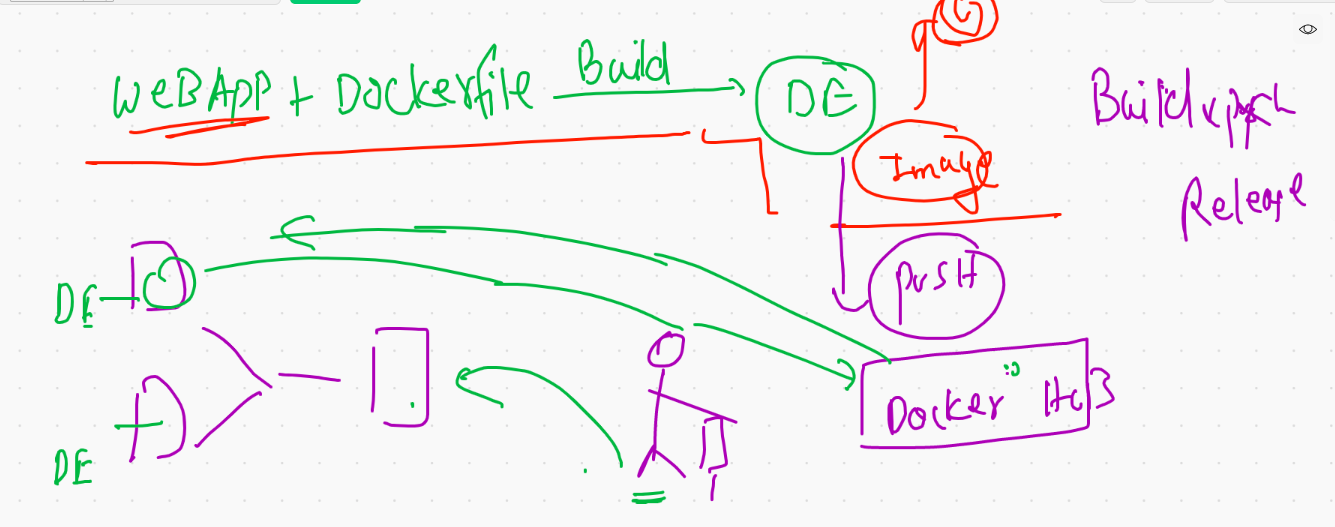 WeBAPP + Dockerfile Build DE
Image
Build & push
Release
PUSH
DE
DE
Docker HUB